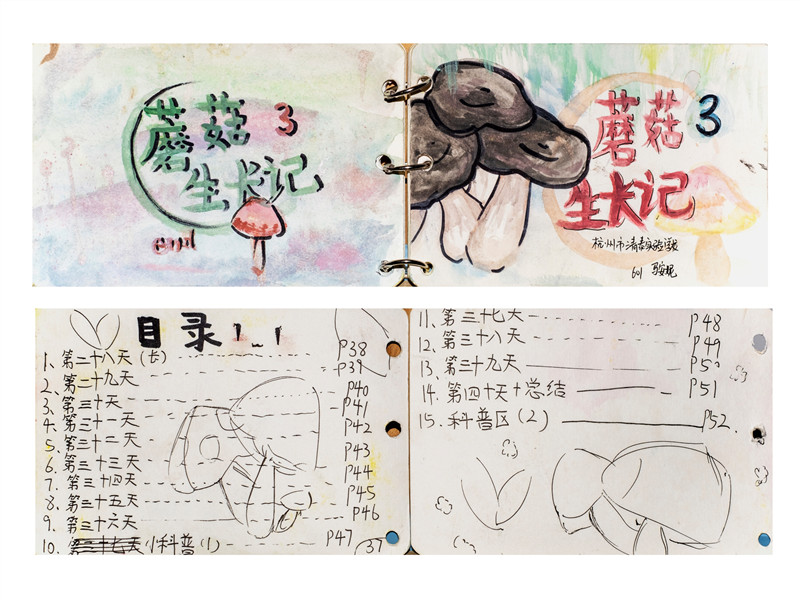 蘑菇 3
生长记
end
蘑菇 3
生长记
杭州市清泰实验学校
601
目录
1、第二十八天(长) P38
2、第二十九天 P39
3、第三十天 P40
4、第三十一天 P41
5、第三十二天 P42
6、第三十三天 P43
7、第三十四天 P44
8、第三十五天 P45
9、第三十六天 P46
10、小科普(1) P47
37
11、第三十七天 P48
12、第三十八天 P49
13、第三十九天 P50
14、第四十天+总结 P51
15、科普区(2) P52